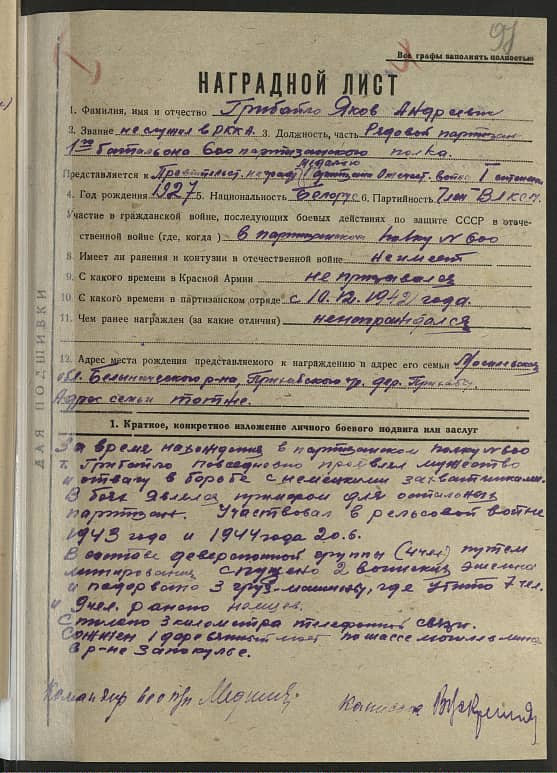 97
Все графы заполнять полностью
НАГРАДНОЙ ЛИСТ
1. Фамилия, имя и отчество Грибайло Яков Андреевич
2. Звание не служил в РККА 3. Должность, часть Рядовой партизан
1го батальона 600 партизанского полка.
Медалью
Представляется к Правительст. награде Партизану Отечест. войны I степени
4. Год рождения 1927 5. Национальность Белорус 6. Партийность Член ВЛКСМ
Участие в гражданской войне, последующих боевых действиях по защите СССР в отече-
ственной войне (где, когда) в партизанском полку № 600
8. Имеет ли ранения и контузии в отечественной войне не имеет
9. С какого времени в Красной Армии не призывался
10. С какого времени в партизанском отряде с 10.12.1942 года.
11. Чем ранее награжден (за какие отличия) не награждался
12. Адрес места рождения представляемого к награждению и адрес его семьи Могилевская
обл. Белыничского р-на,
Адрес семьи тот же.
1. Краткое, конкретное изложение личного боевого подвига или заслуг
За время нахождения в партизанском полку № 600
т. Грибайло повседневно проявлял мужество
и отвагу в борьбе с немецкими захватчиками.
В боях являлся примером для остальных
партизан. Участвовал в рельсовой войне
1943 года и 1944 года
В составе диверсионной группы (4 чел) путем
минирования спущено 2 воинских эшелона
и подорвано 3 груз. машины, где убито 7 чел.
и 9 чел. ранено немцев.
Спилено 3 километра телефонной связи.
Сожжен 1 деревянный мост по шоссе Могилев Минск
в р-не Запокулье.
Командир 600 пп
капитан
ДЛЯ ПОДШИВКИ